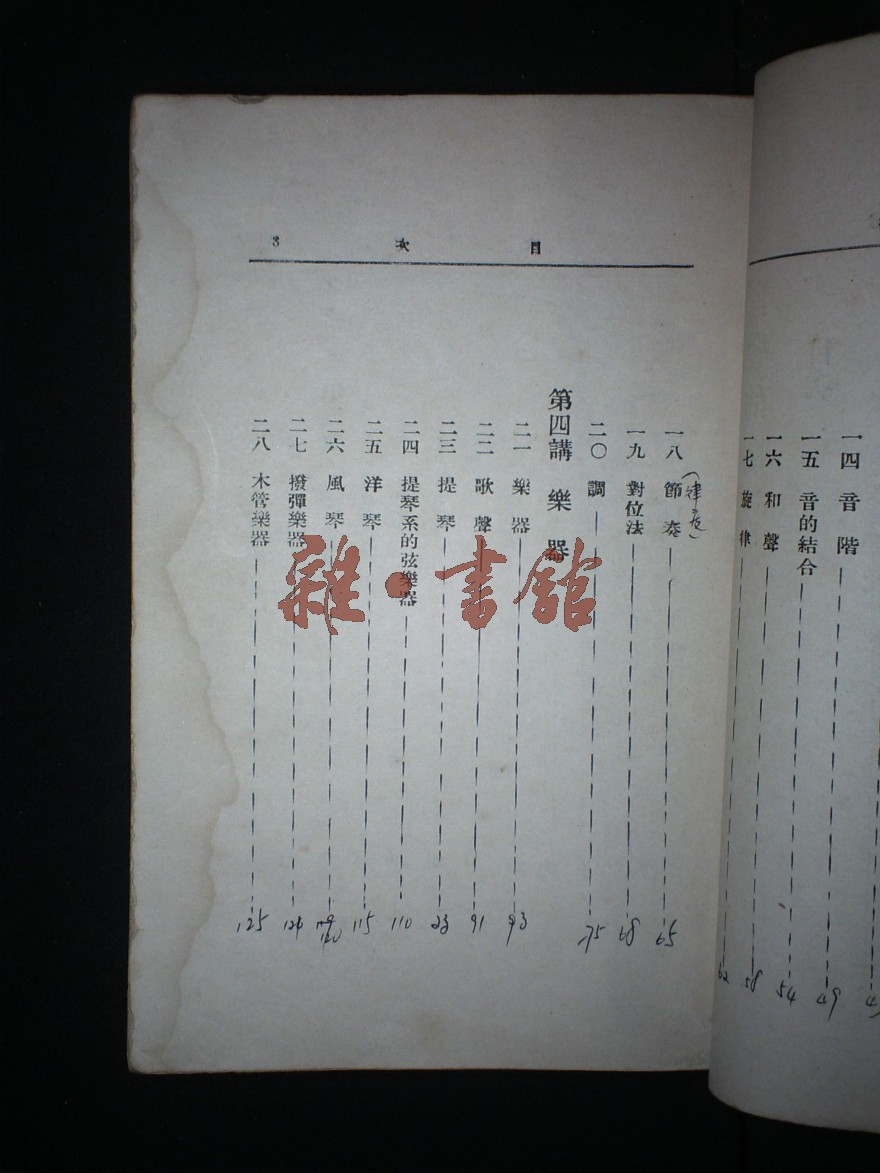 一四 音階
一五 音的結合 49
一六 和聲 54
一七 旋律 58
62
目次 3
一八 節奏 65
一九 對位法 68
二〇 調 75
第四講 樂器
二一 樂器
二二 歌聲 91
二三 提琴
二四 提琴系的弦樂器 110
二五 洋琴 115
二六 風琴 120
二七 撥彈樂器
二八 木管樂器 125
雜·書館